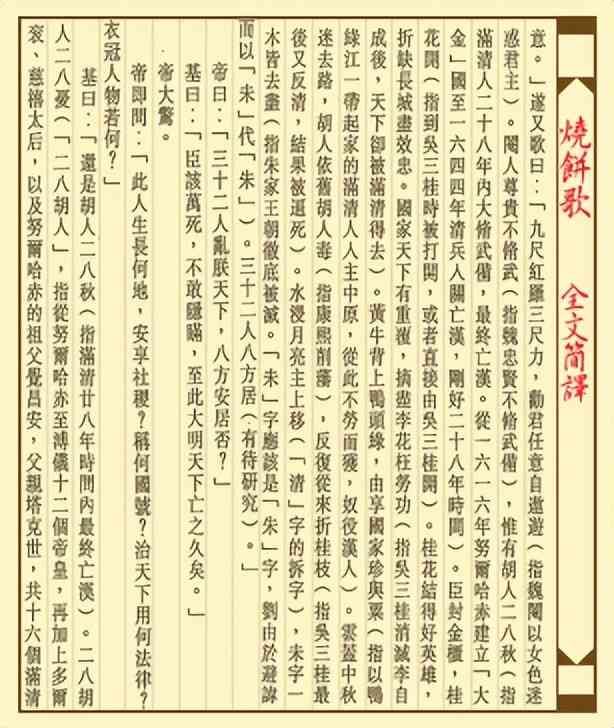 燒餅歌 全文简譯
意。」遂又歌曰：「九尺紅羅三尺刀，勸君任意自遨遊（指魏閹以女色迷
惑君主）。閹人尊貴不脩武（指魏忠賢不脩武備），惟有胡人二八秋（指
滿清人二十八年內大脩武備，最終亡漢。從一六一六年努爾哈赤建立「大
金」國至一六四四年清兵入關亡漢，剛好二十八年時間）。臣封金櫃，桂
花開（指到吳三桂時被打開，或者直接由吳三桂開）。桂花結得好英雄，
折缺長城盡效忠。國家天下有重覆，摘盡李花枉勞功（指吳三桂消滅李自
成後，天下卻被滿清得去）。黃牛背上鴨頭綠，由享國家珍與粟（指以鴨
綠江一帶起家的滿清人入主中原，從此不勞而獲，奴役漢人）。雲蓋中秋
迷去路，胡人依舊胡人毒（指康熙削藩），反復從來折桂枝（指吳三桂最
後又反清，結果被逼死）。水浸月亮主上移（「清」字的拆字），末字一
木皆去盡（指朱家王朝徹底被滅。「末」字應該是「朱」字，劉由於避諱
而以「末」代「朱」）。三十二人八方居（有待研究）。」
帝曰：「三十二人亂朕天下，八方安居否？」
基曰：「臣該萬死，不敢隱瞞，至此大明天下亡之久矣。」
帝大驚。
帝即問：「此人生長何地，安享社稷？稱何國號？治天下用何法律？
衣冠人物若何？」
基曰：「還是胡人二八秋（指滿清廿八年時間內最終亡漢）。二八胡
人二八憂（「二八胡人」，指從努爾哈赤至溥儀十二個帝皇，再加上多爾
袞、慈禧太后，以及努爾哈赤的祖父覺昌安，父親塔克世，共十六個滿清